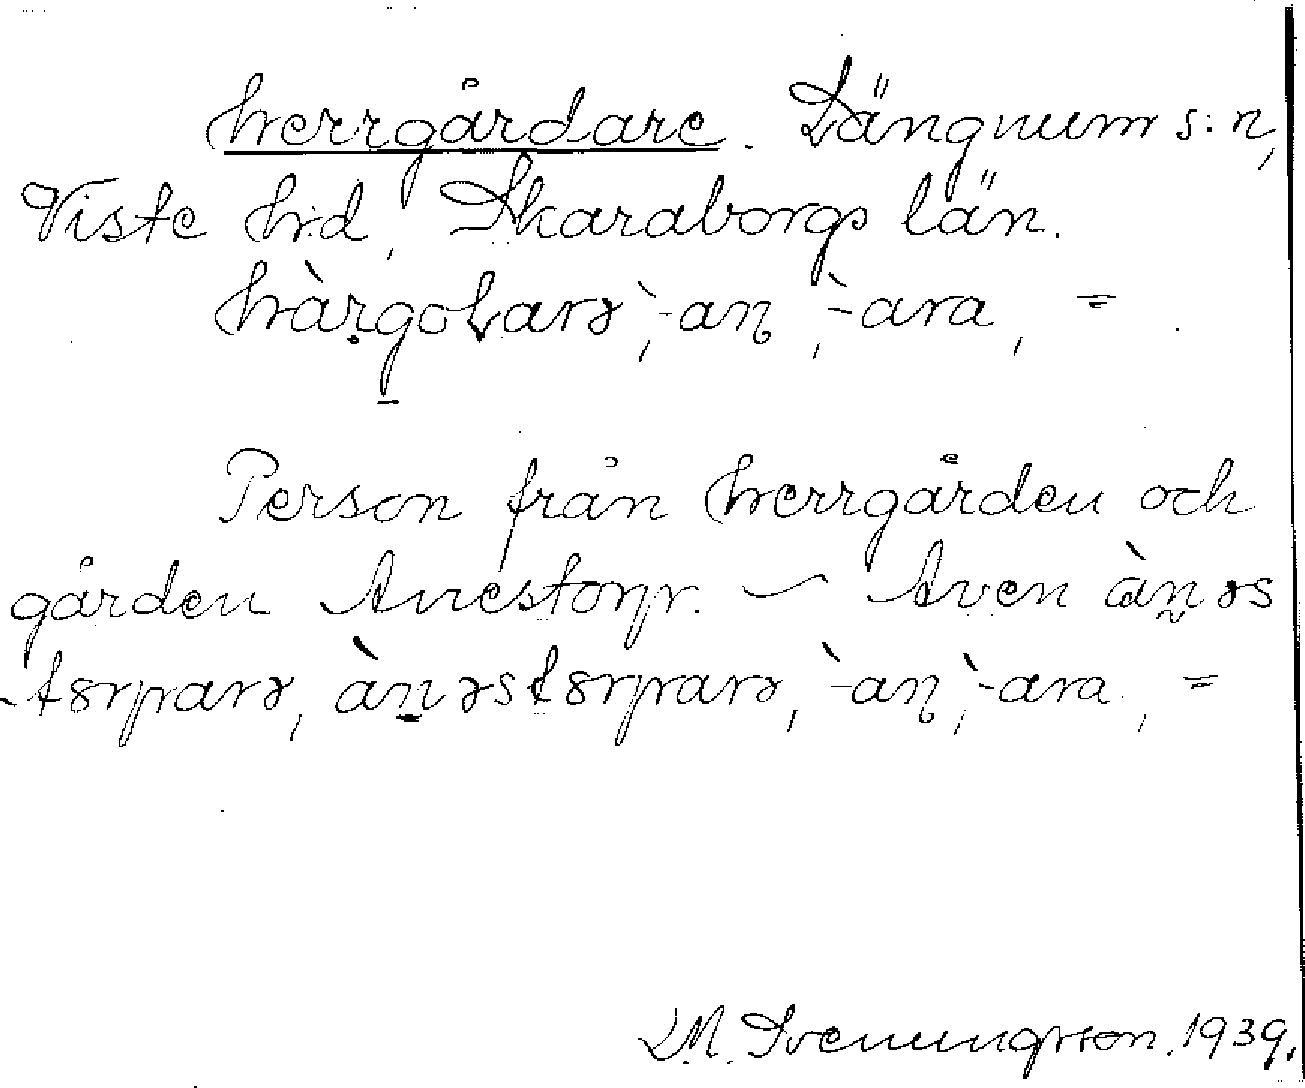 herrgårdare. Längnum s:n,
Viste hd, Skaraborgs län.
hàrgoɫarə, -̀an, -̀ara, =
Person från herrgården och
gården Annestorp. – Även ànəs
-tɵrparə, ànəstɵrparə, -̀an, -̀ara, =
M. Svenungsson. 1939.